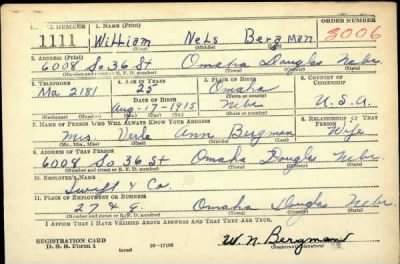 SERIAL NUMBER 1. NAME (Print) ORDER NUMBER
1111 William Nels Bergman 3006
(First) (Middle) (Last)
2. ADDRESS (Print)
6008 So. 36 St Omaha Douglas Nebr.
(Number and street or R. F. D. number) (Town) (County) (State)
3. TELEPHONE 4. AGE IN YEARS 5. PLACE OF BIRTH 6. COUNTRY OF CITIZENSHIP
Ma 2181 25 Omaha
DATE OF BIRTH (Town or county)
Aug-17-1915 Nebr U.S.A.
(Exchange) (Number) (Mo.) (Day) (Yr.) (State or country)
7. NAME OF PERSON WHO WILL ALWAYS KNOW YOUR ADDRESS 8. RELATIONSHIP OF THAT PERSON
Mrs. Verla Ann Bergman Wife
(Mr., Mrs., Miss) (First) (Middle) (Last)
9. ADDRESS OF THAT PERSON
6008 So. 36 St Omaha Douglas Nebr.
(Number and street or R. F. D. number) (Town) (County) (State)
10. EMPLOYER'S NAME
Swift & Co.
11. PLACE OF EMPLOYMENT OR BUSINESS
27 & Q. Omaha Douglas Nebr.
(Number and street or R. F. D. number) (Town) (County) (State)
I AFFIRM THAT I HAVE VERIFIED ABOVE ANSWERS AND THAT THEY ARE TRUE.
REGISTRATION CARD
D. S. S. Form 1
(over) W. N. Bergman
(Registrant's signature)